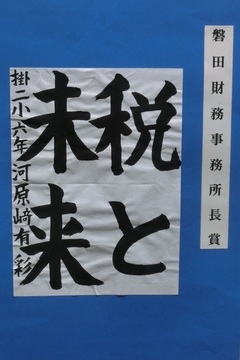 磐田財務事務所長賞
税と
未来
掛二小六年 河原﨑有彩